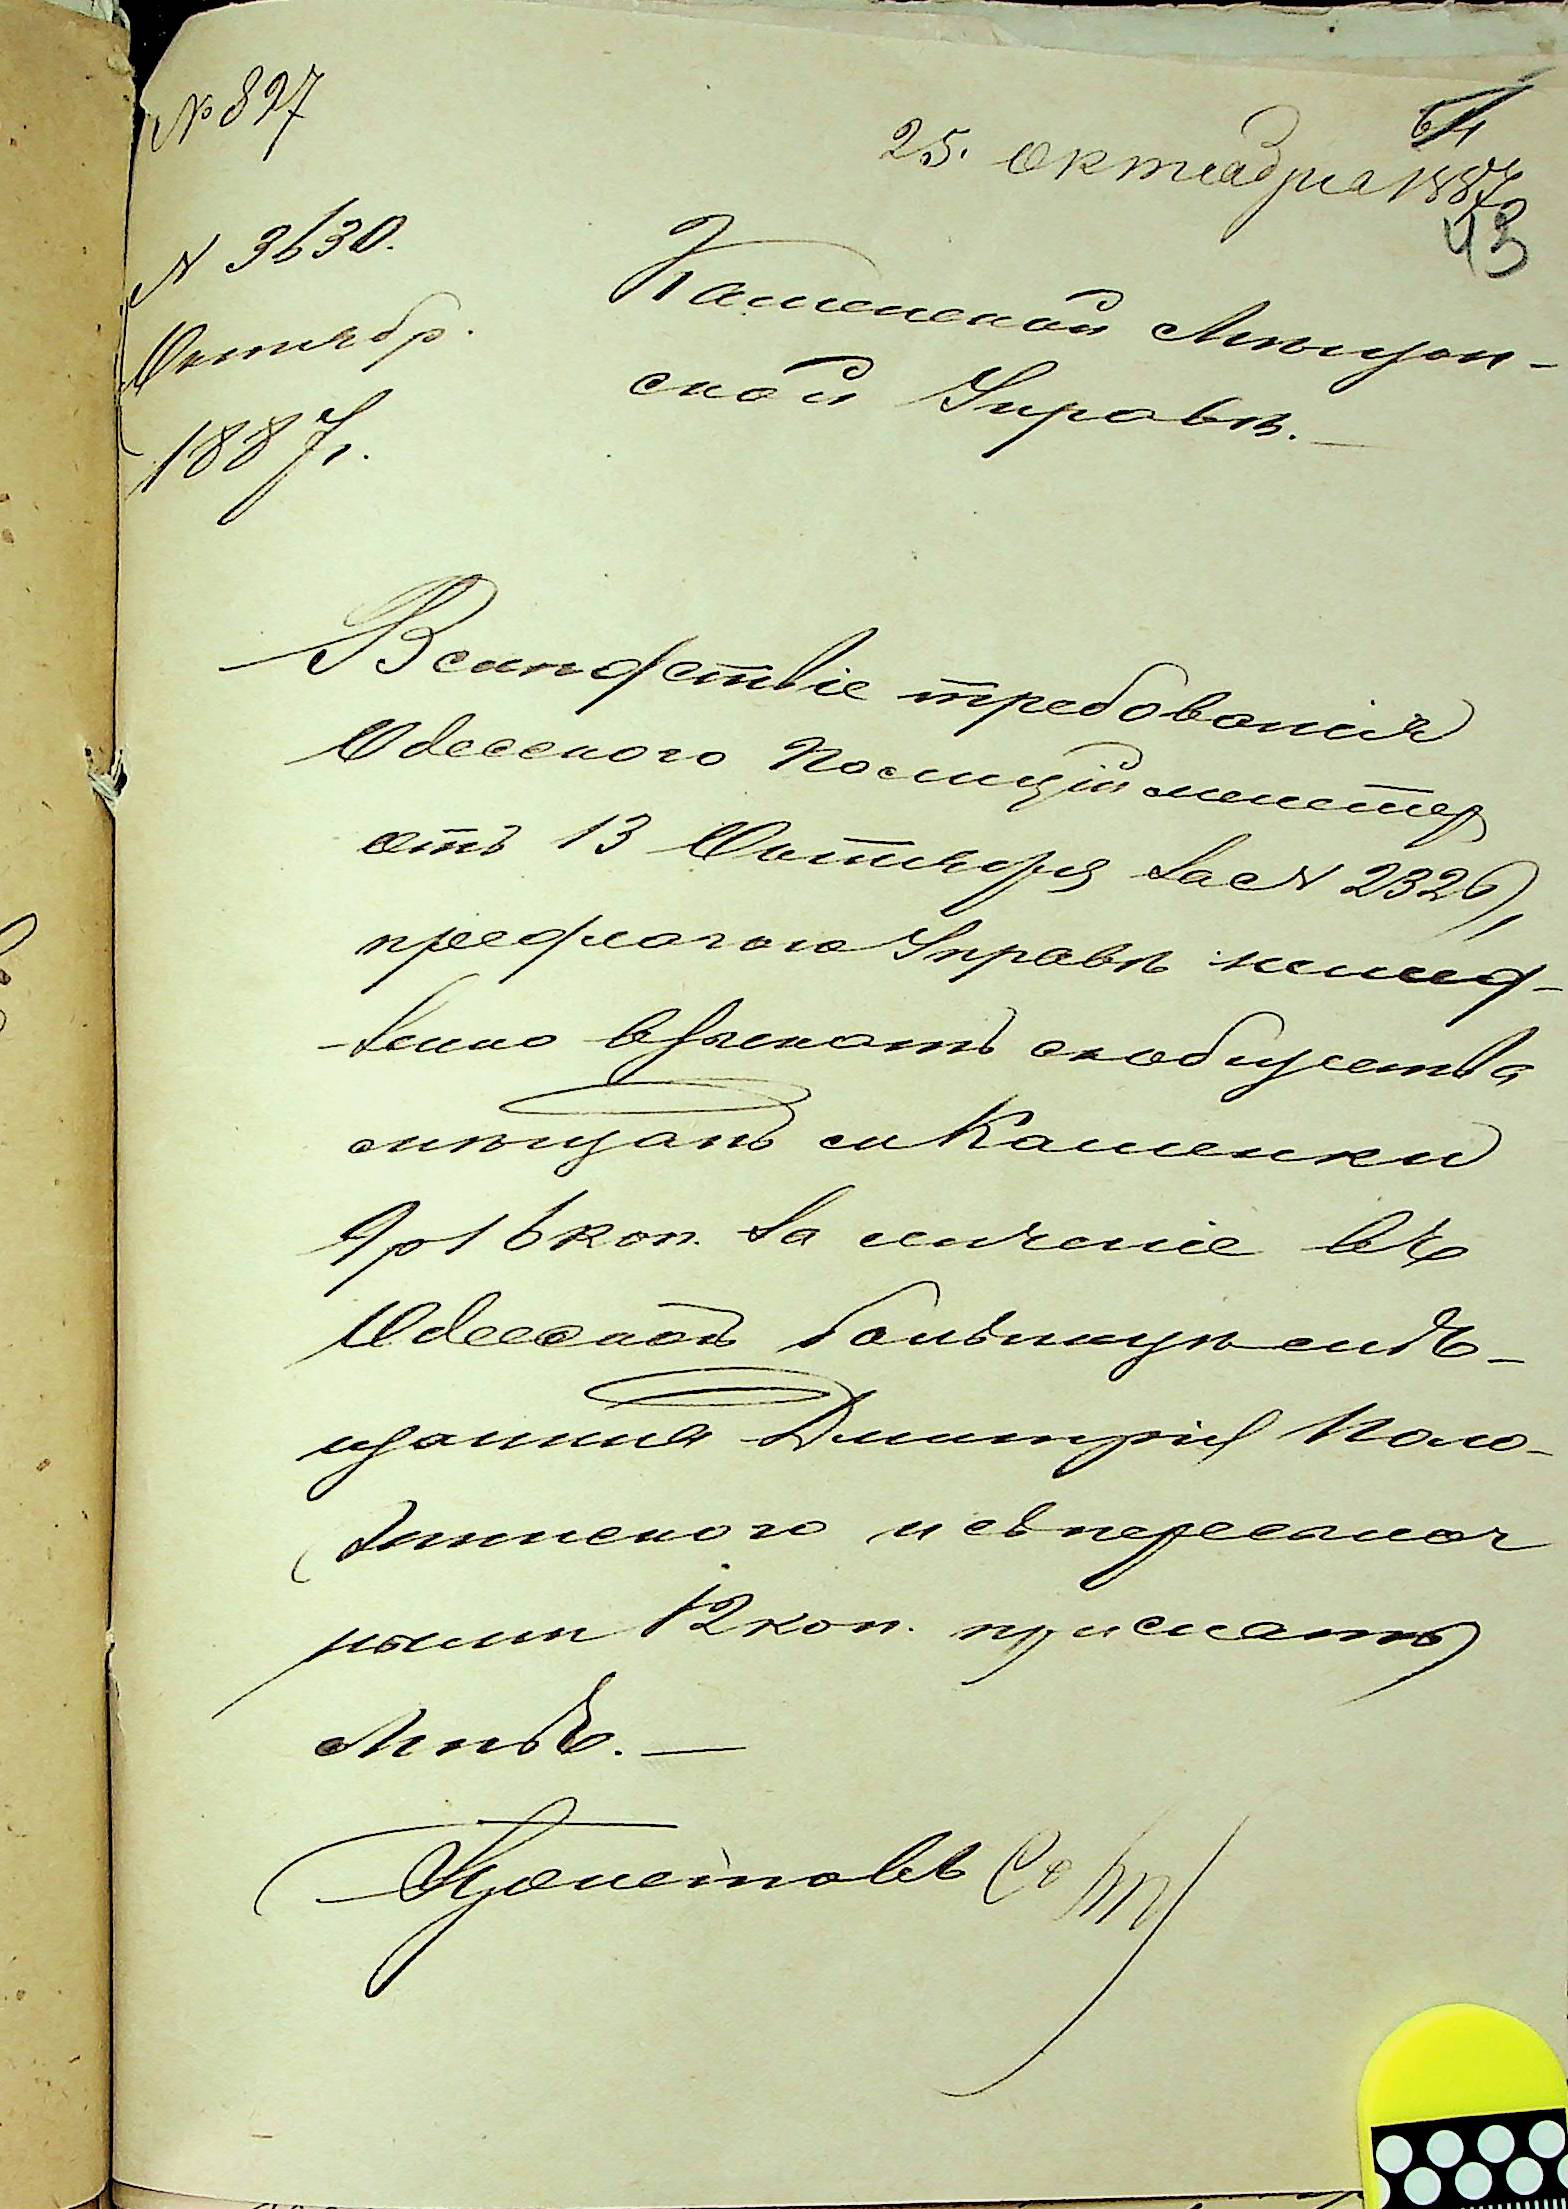 № 827
25. октября 1887
43
№ 3630.
Октябр.
1887 г.
Каменской Мѣщан-
ской Управѣ.
Вслѣдствіе требованія
Одесского Полицiймейстер
отъ 13 Октября за № 2326,
предлагаю Управѣ немед-
ленно взыскать съ общества
мѣщанъ м Каменки
9 р 16 коп. за леченіе въ
Одесской больницѣ мѣ-
щанина Дмитрія
и съ пересылоч
ными 12 коп. прислать
мнѣ.